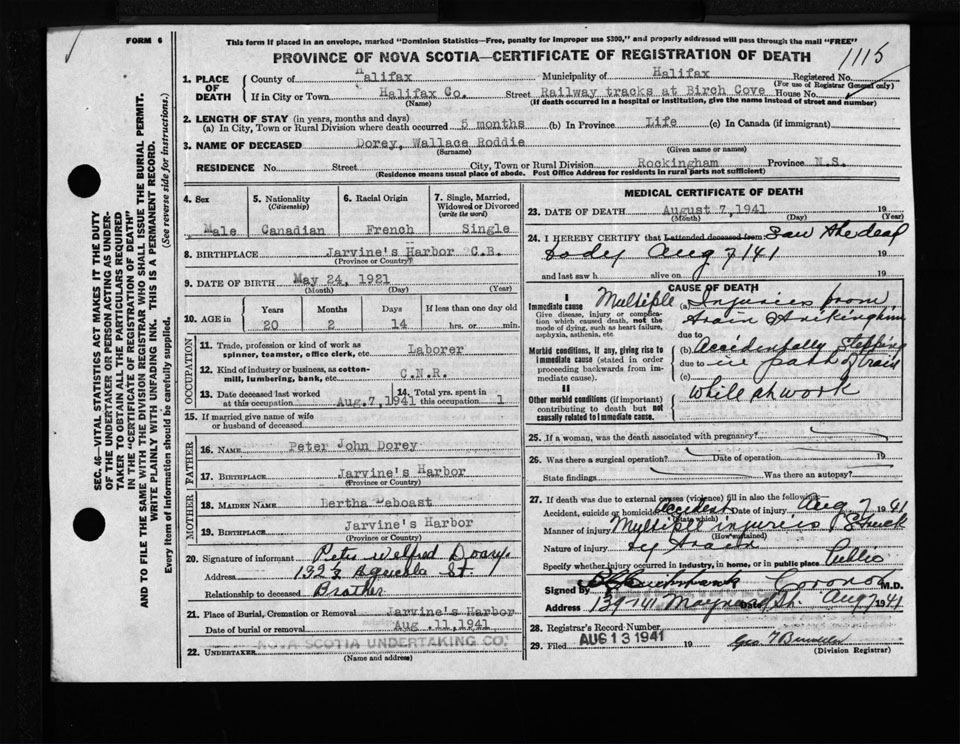 FORM 6
This form if placed in an envelope, marked "Dominion Statistics—Free, penalty for improper use $300," and properly addressed will pass through the mail "FREE"
PROVINCE OF NOVA SCOTIA—CERTIFICATE OF REGISTRATION OF DEATH
1115
SEC. 46—VITAL STATISTICS ACT MAKES IT THE DUTY
OF THE UNDERTAKER OR PERSON ACTING AS UNDER-
TAKER TO OBTAIN ALL THE PARTICULARS REQUIRED
IN THE "CERTIFICATE OF REGISTRATION OF DEATH"
AND TO FILE THE SAME WITH THE DIVISION REGISTRAR WHO SHALL ISSUE THE BURIAL PERMIT.
WRITE PLAINLY WITH UNFADING INK. THIS IS A PERMANENT RECORD.
Every item of information should be carefully supplied. (See reverse side for instructions.)
1. PLACE OF DEATH
County of Halifax Municipality of Halifax Registered No.
(For use of Registrar General only)
If in City or Town Halifax Co. Street Railway tracks at Birch Cove House No.
(Name) (If death occurred in a hospital or institution, give the name instead of street and number)
2. LENGTH OF STAY (in years, months and days)
(a) In City, Town or Rural Division where death occurred 5 months (b) In Province Life (c) In Canada (if immigrant)
3. NAME OF DECEASED Dorey, Wallace Roddie
(Surname) (Given name or names)
RESIDENCE No. Street City, Town or Rural Division Rockingham Province N.S.
(Residence means usual place of abode. Post Office Address for residents in rural parts not sufficient)
4. Sex 5. Nationality (Citizenship) 6. Racial Origin 7. Single, Married, Widowed or Divorced (write the word)
Male Canadian French Single
8. BIRTHPLACE Jarvine's Harbor C.B.
(Province or Country)
9. DATE OF BIRTH May 24, 1921
(Month) (Day) (Year)
10. AGE in Years Months Days If less than one day old
20 2 14 hrs. or min.
OCCUPATION
11. Trade, profession or kind of work as spinner, teamster, office clerk, etc. Laborer
12. Kind of industry or business, as cotton-mill, lumbering, bank, etc. C.N.R.
13. Date deceased last worked at this occupation Aug.7,1941 14. Total yrs. spent in this occupation 1
15. If married give name of wife
or husband of deceased
FATHER
16. NAME Peter John Dorey
17. BIRTHPLACE Jarvine's Harbor
(Province or Country)
MOTHER
18. MAIDEN NAME Bertha Deboast
19. BIRTHPLACE Jarvine's Harbor
(Province or Country)
20. Signature of informant
Address St.
Relationship to deceased Brother
21. Place of Burial, Cremation or Removal Jarvine's Harbor
Date of burial or removal Aug. 11,1941
22. UNDERTAKER NOVA SCOTIA UNDERTAKING CO.
(Name and address)
MEDICAL CERTIFICATE OF DEATH
23. DATE OF DEATH August 7,1941 19
(Month) (Day) (Year)
24. I HEREBY CERTIFY that I attended deceased from Saw the dead
body Aug 7/41 19
and last saw h alive on 19
CAUSE OF DEATH
I
Immediate cause
Give disease, injury or complication which caused death, not the mode of dying, such as heart failure, asphyxia, asthenia, etc
Morbid conditions, if any, giving rise to immediate cause (stated in order proceeding backwards from immediate cause).
II
Other morbid conditions (if important) contributing to death but not causally related to immediate cause.
Multiple (a) Injuries from
train striking him
due to
(b) Accidentally Stepping
due to in path of train
(c)
While at work
25. If a woman, was the death associated with pregnancy?
26. Was there a surgical operation? Date of operation 19
State findings Was there an autopsy?
27. If death was due to external causes (violence) fill in also the following:
Accident, suicide or homicide Accident Date of injury Aug 7 1941
(State which)
Manner of injury Multiple injuries Struck
(How sustained)
Nature of injury by train
Specify whether injury occurred in industry, in home, or in public place Public
Signed by Coroner M.D.
Address 139-141 Maynard St. Aug 7 1941
28. Registrar's Record Number
29. Filed AUG 13 1941 19
(Division Registrar)